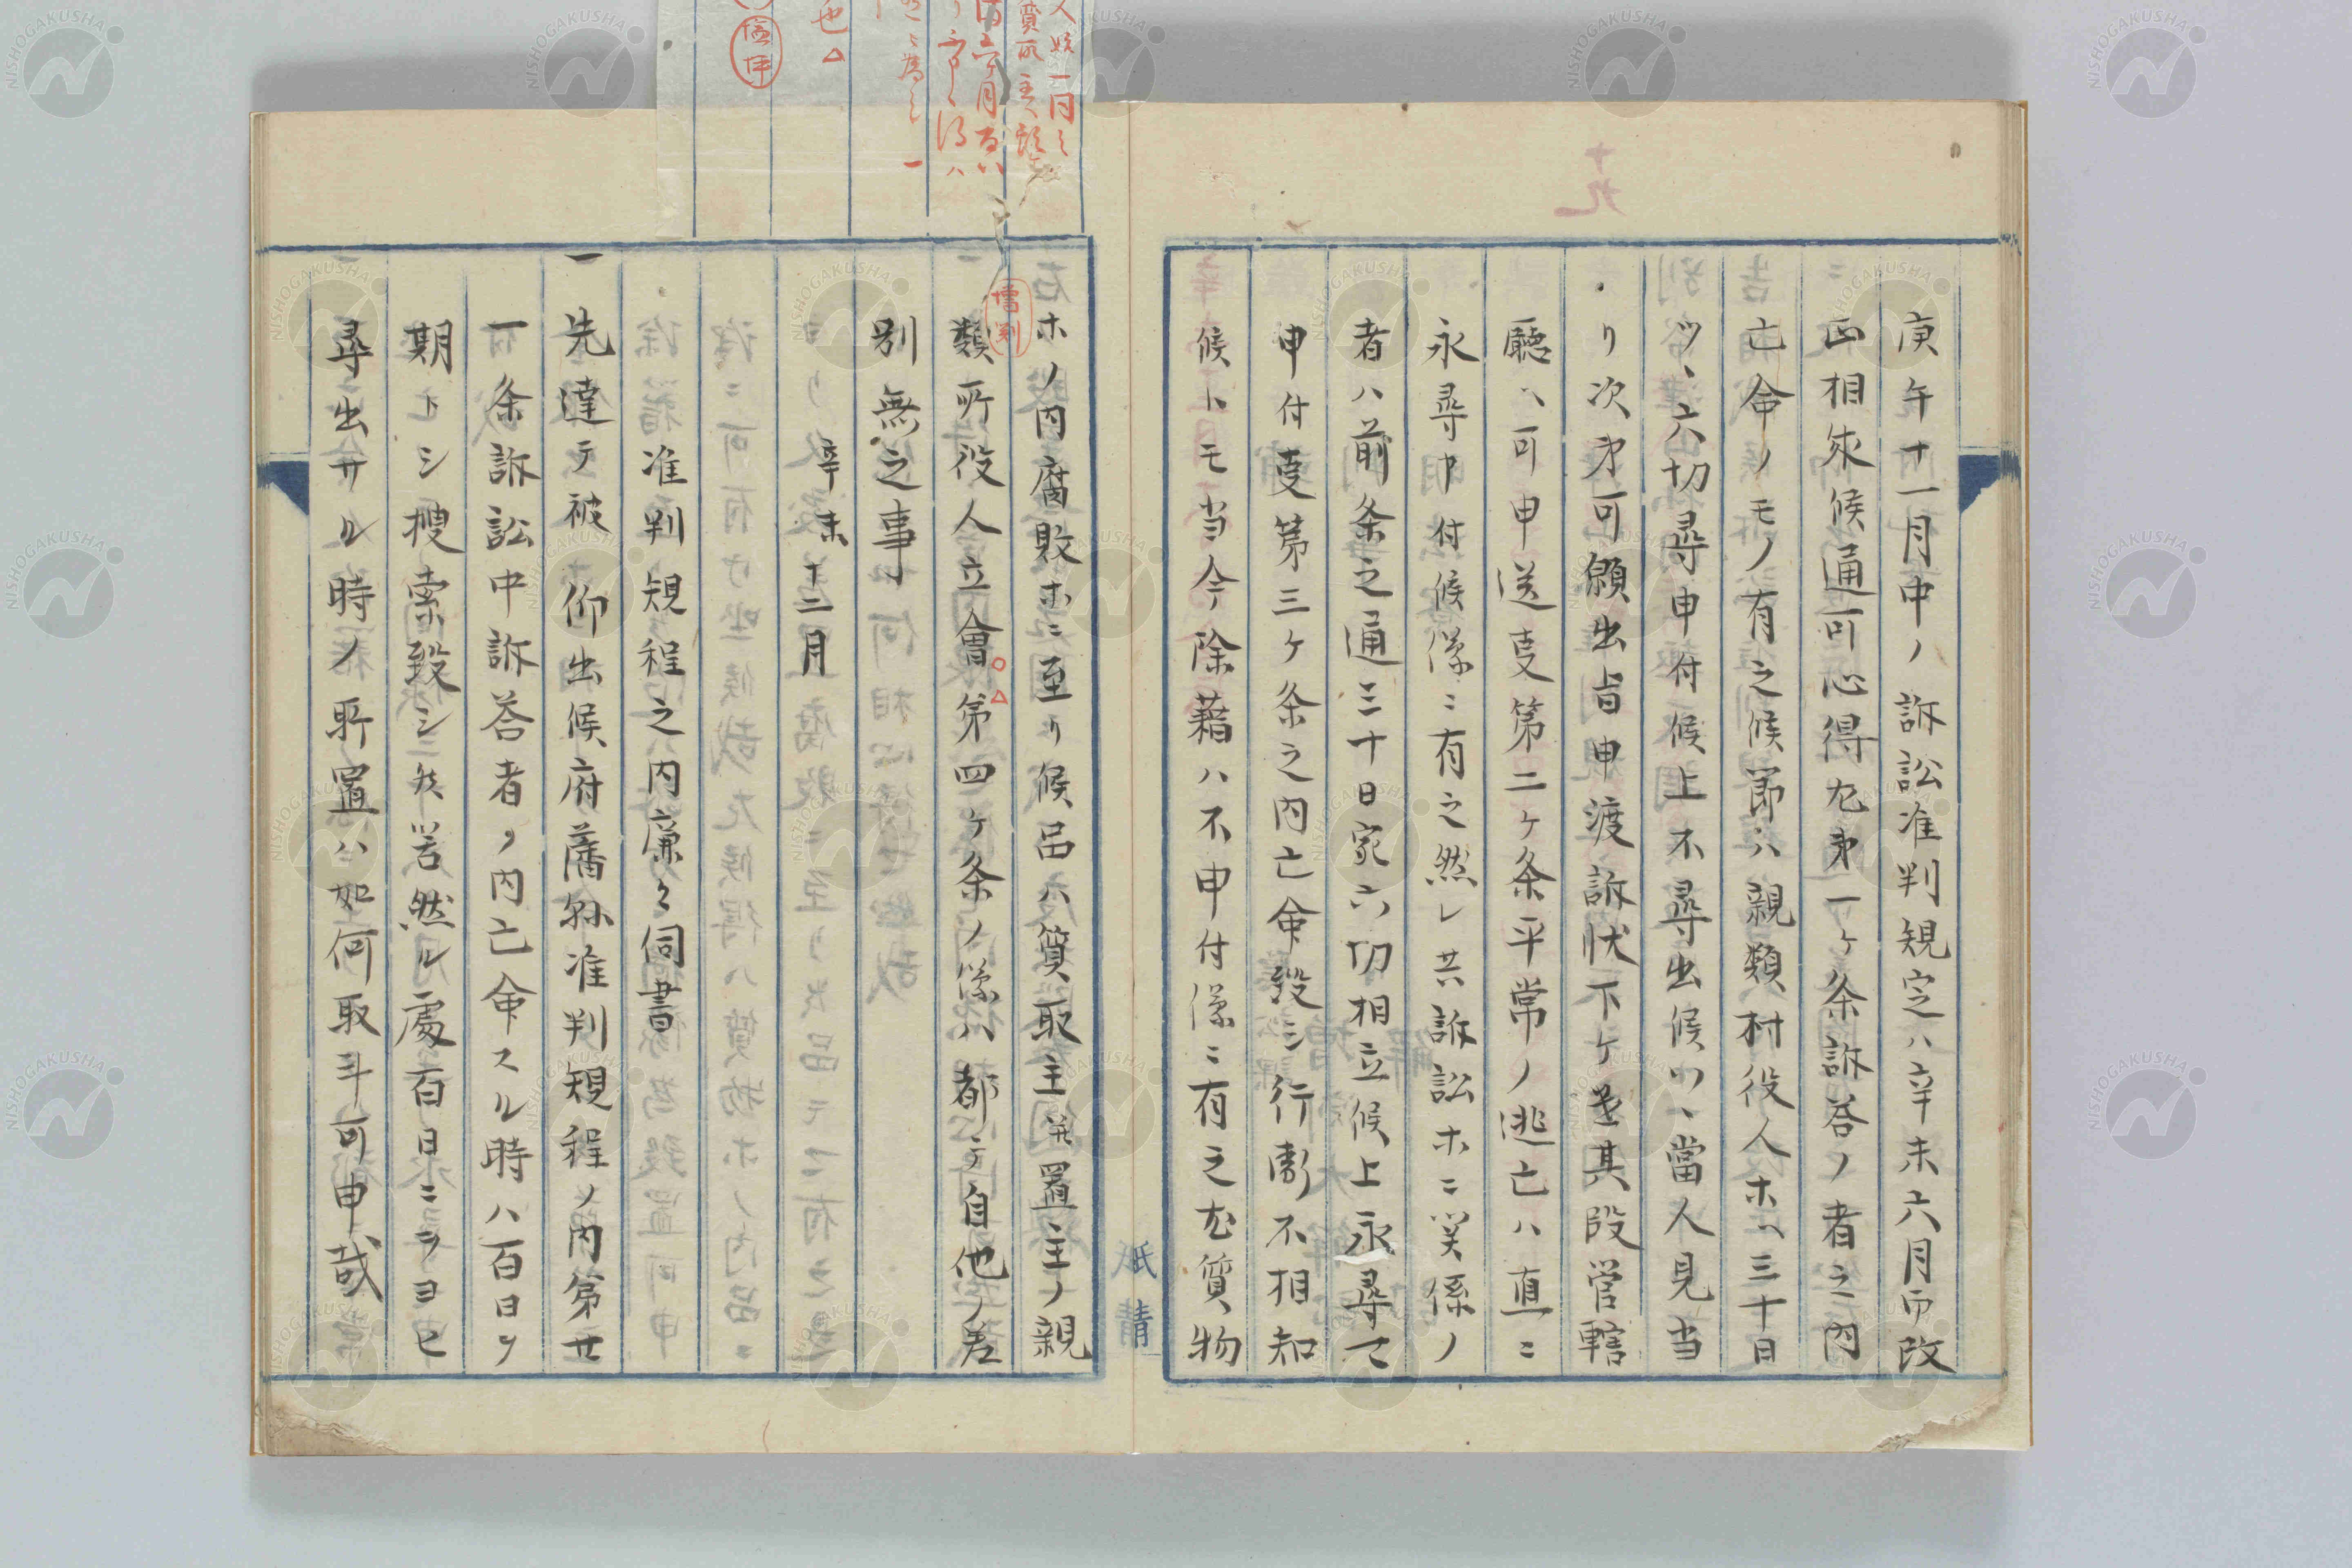 十九
庚午十一月中ノ訴訟准判規定ハ辛未六月中改
正相成候通可心得尤第一ケ条訴答ノ者之内
亡命ノモノ有之候節ハ親類村役人ホヘ三十日
ツヽ六切尋申付候上不尋出候ハヽ當人見当
リ次第可願出旨申渡訴状下ケ遣其段管轄
廳ヘ可申送事第二ケ条平常ノ逃亡ハ直ニ
永尋申付候儀ニ有之然レ共訴訟ホニ関係ノ
者ハ前条之通三十日宛六切相立候上永尋可
申付事第三ケ条之内亡命致シ行衛不相知
候トモ当今除藉ハ不申付儀ニ有之尤質物
右ホノ内腐敗ホニ至リ候品ハ質取主并置主ノ親
類所役人立會○△第四ケ条ノ儀ハ都テ自他ノ差
別無之事
辛未十二月
准判規程之内廉々伺書
一先達テ被仰出候府藩縣准判規程ノ内第廿
一条訴訟中訴答者ノ内亡命スル時ハ百日ヲ
期トシ捜索致シ候筈然ル處百日ニテヨヒ
尋出サル時ノ所置ハ如何取斗可申哉
祇請